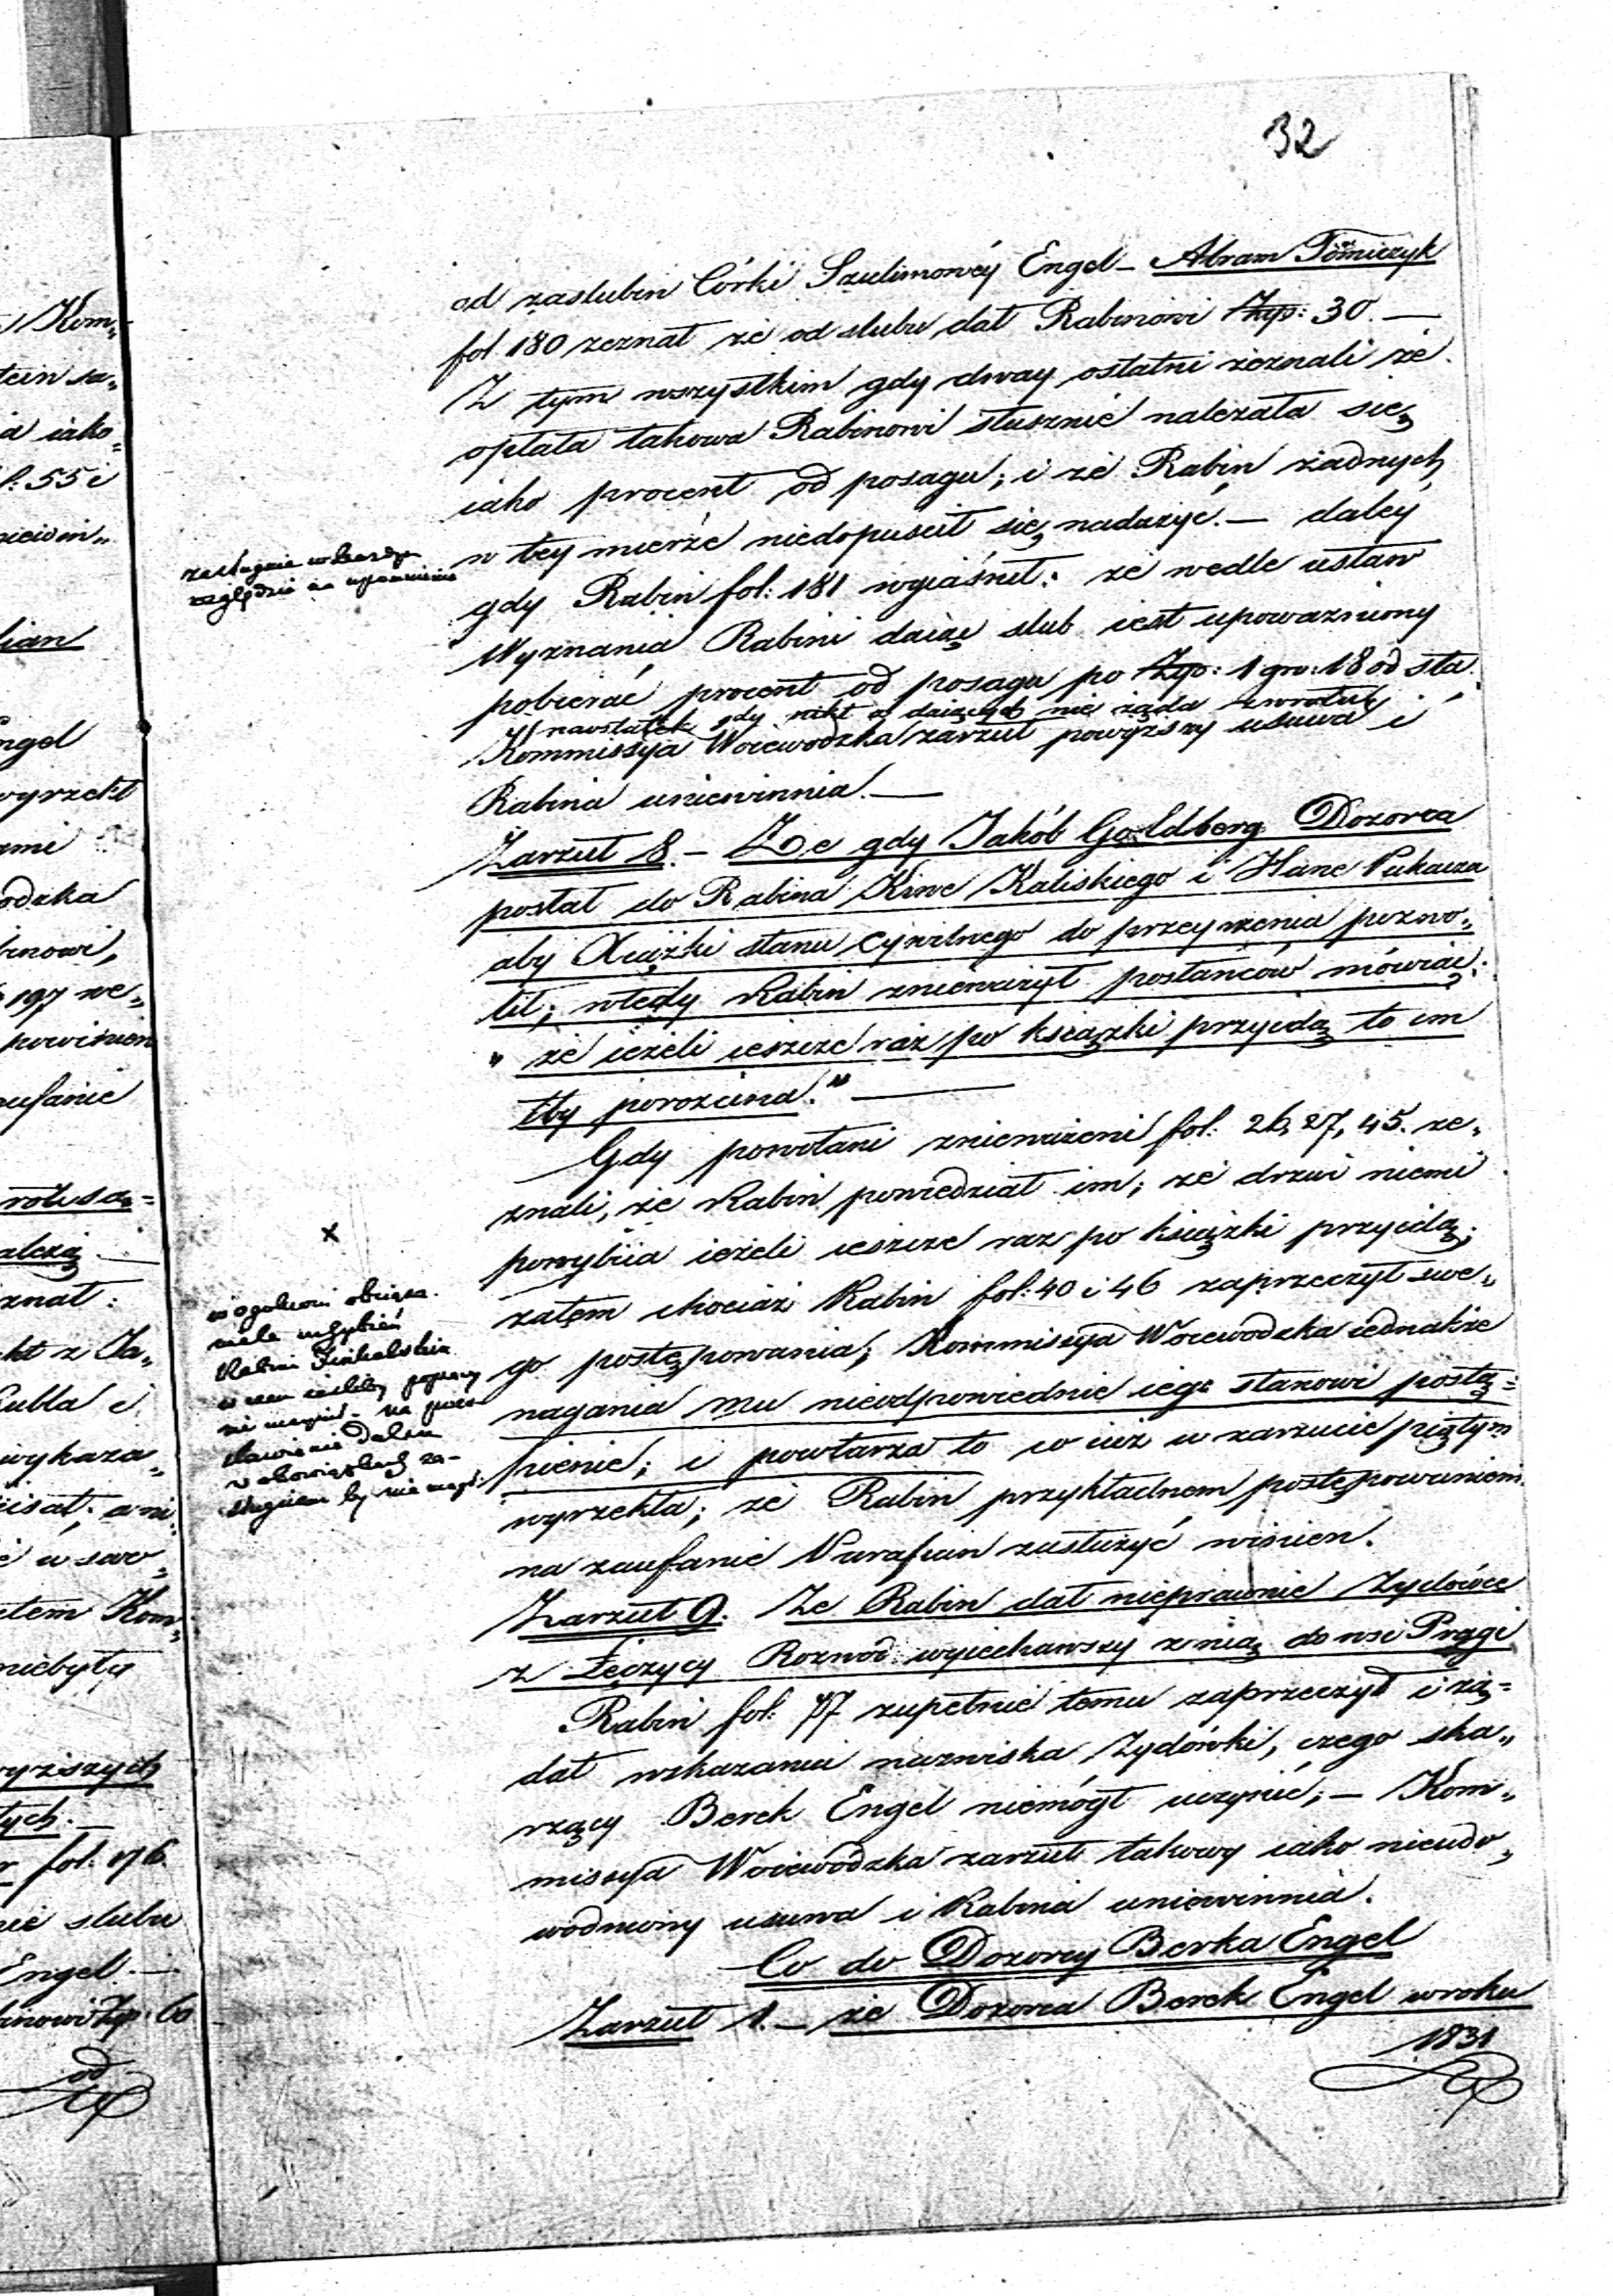 32
od zaslubin Córki Szulimowéy Engel – Abram
fol 180 zeznał że od slubu dał Rabinowi Złp: 30. —
Z tym wszystkim gdy dway ostatni zeznali że
opłata takowa Rabinowi słusznie należała się
iako procent od posagu; i że Rabin żadnych
w tey mierze niedopuścił się nadużyć. — daléy
gdy Rabin fol: 181 wyiaśnił: że wedle ustaw
Wyznania Rabini daiąc slub iest upoważniony
pobierać procent od posagu po Złp: 1 gro: 18 od sta
y naostatek gdy nikt z daiących nie żąda zwrotu
Kommissya Woiewodzka zarzut powyższy usuwa i
Rabina uniewinnia. —
Zarzut 8. – Że gdy Jakób Goldberg Dozorca
posłał do Rabina Kiwe Kaliskiego i Hane Pukacza
aby Xiążki stanu cywilnego do przeyrzenia pozwo„
lił; wtedy Rabin znieważył posłańców mówiąc:
„ że ieżeli ieszcze raz po książki przyidą to im
łby porozcina." —
Gdy powołani znieważeni fol: 26, 27, 45. ze„
znali, że Rabin powiedział im; że drzwi niemi
powybiia ieżeli ieszcze raz po książki przyidą;
zatem chociaż Rabin fol: 40 i 46 zaprzeczył swe„
go postępowania; Kommissya Woiewodzka iednakże
nagania mu nieodpowiednie iego stanowi postą=
pienie; i powtarza to co iuż w zarzucie piątym
wyrzekła; że Rabin przykładnem postępowaniem
na zaufanie Parafian zasłużyć winien.
Zarzut 9. Że Rabin dał nieprawnie Żydówce
z Łęczycy Rozwód wyiechawszy z nią do wsi Pragi
Rabin fol: 77 zupełnie temu zaprzeczył i żą=
dał wskazania nazwiska Żydówki, czego ska„
rzący Berek Engel niemógł uczynić; – Kom„
missya Woiewodzka zarzut takowy iako nieudo„
wodniony usuwa i Rabina uniewinnia.
Co do Dozorcy Berka Engel
Zarzut 1. – że Dozorca Berek Engel w roku
1831
zasługuie w
względzie na upomnienie
x
w ogólności
uchybień
Rabin
w czem
nie uczynił – na
dalsze
w obowiązkach za-
by nie mógł.
Kom„
iako=
: 55 i
Engel
wyrzekł
197 we„
powinien
zaufanie
znał:
wykaza„
Kom„
niebyły
fol: 176
slubu
Engel. —
Złp: 60
od